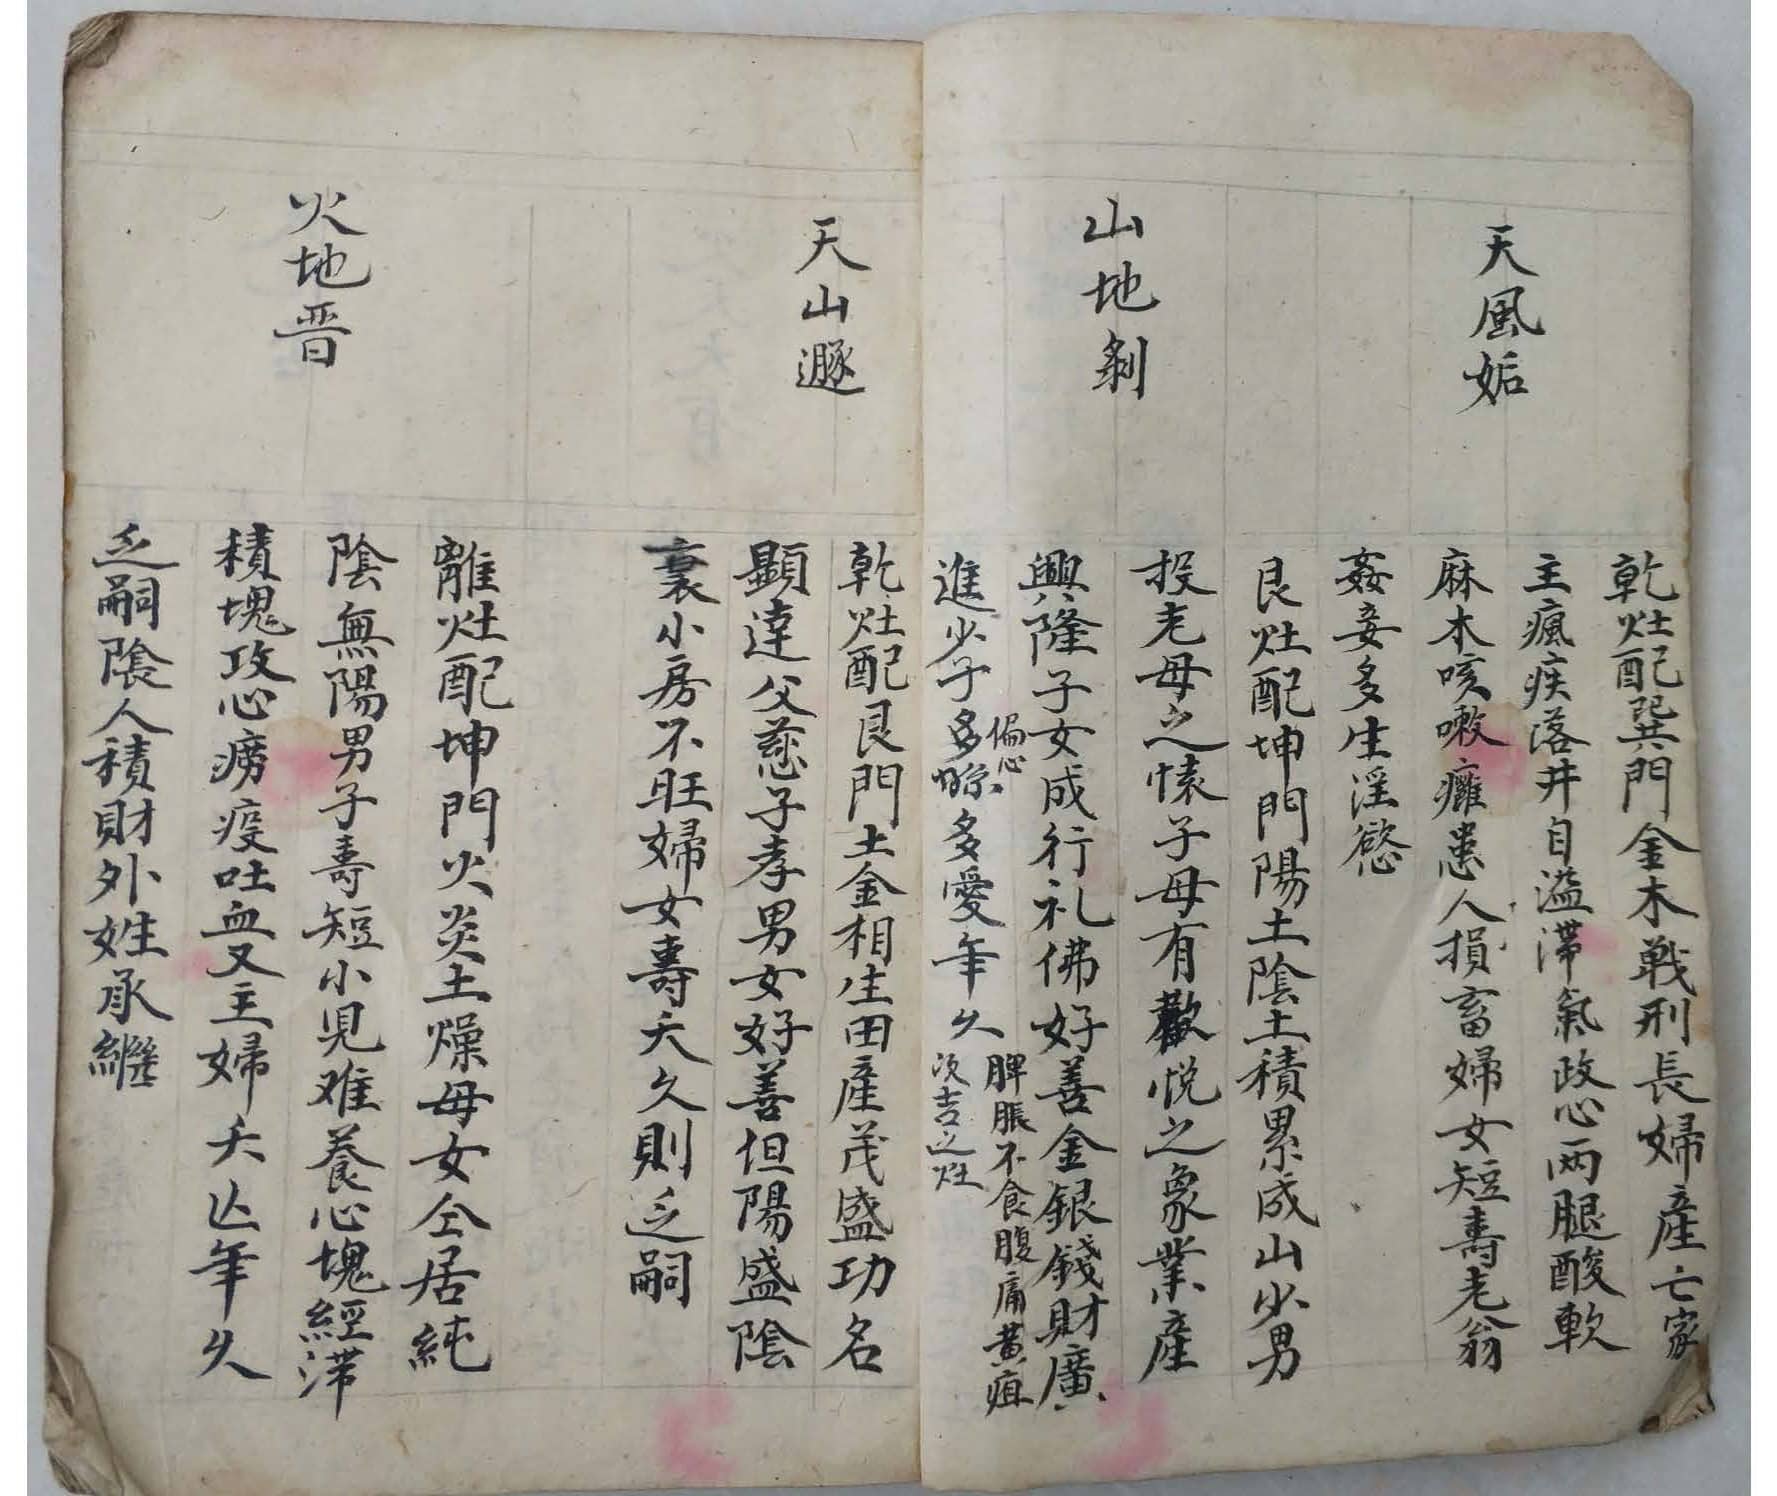 天風姤
乾灶配巽門金木戰刑長婦產亡家
主瘋疾落井自溢滯氣攻心两腿酸軟
麻木咳嗽癱患人損畜婦女短壽老翁
姦妾多生淫慾
山地剝
艮灶配坤門陽土陰土積累成山少男
投老母之懐子母有歡悅之象業產
興隆子女成行礼佛好善金銀錢財廣
進少子多
偏心
多愛年久
脾脹不食腹痛黃疸
次吉之灶
天山遯
乾灶配艮門土金相生田產茂盛功名
顯達父慈子孝男女好善但陽盛陰
衰小房不旺婦女壽夭久則乏嗣
火地晋
離灶配坤門火炎土燥母女仝居純
陰無陽男子壽短小児难養心塊經滯
積塊攻心癆疫吐血又主婦夭亾年久
乏嗣陰人積財外姓承繼